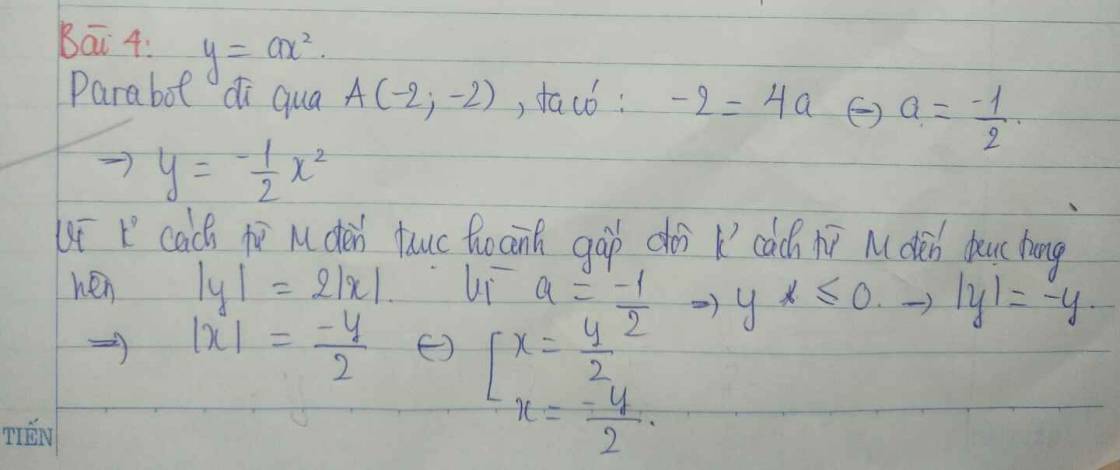 Bài 4: y = ax².
Parabol đi qua A(-2; -2), ta có: -2 = 4a ⇔ a = -1/2.
⇒ y = -1/2 x²
Vì k' cách từ M đến trục hoành gấp đôi k' cách từ M đến trục tung
nên |y| = 2|x|. Vì a = -1/2 → y ≤ 0. → |y| = -y.
⇒ |x| = -y/2 ⇔ [ x = y/2
x = -y/2.
TIẾN